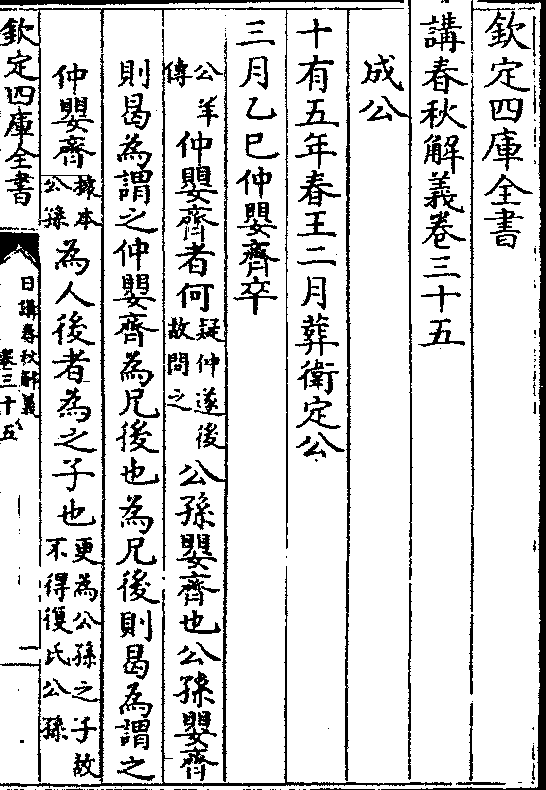 欽定四庫全書
講春秋解義卷三十五
成公
十有五年春王二月葬衛定公
三月乙巳仲嬰齊卒
公羊傳仲嬰齊者何疑仲遂後故問之公孫嬰齊也公孫嬰齊
則曷為謂之仲嬰齊為兄後也為兄後則曷為謂之
仲嬰齊據本公孫為人後者為之子也更為公孫之子故不得復氏公孫
欽定四庫全書
日講春秋解義
卷三十五
一